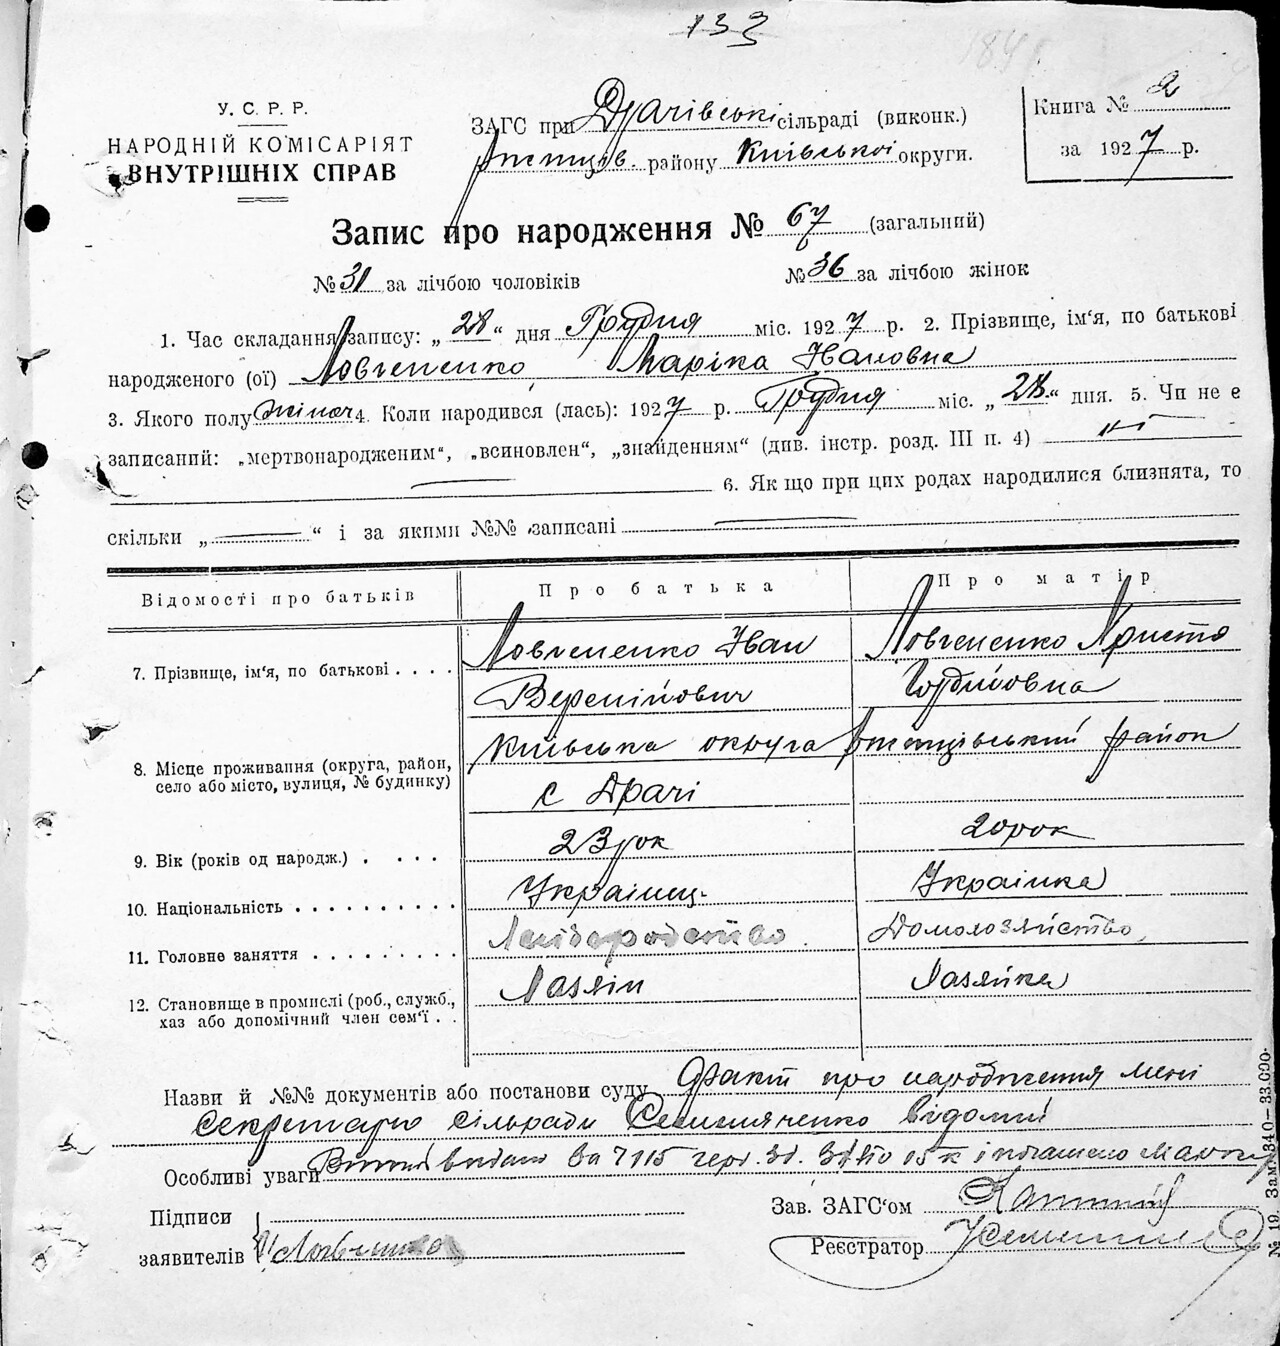 133
У. С. Р. Р.
НАРОДНІЙ КОМІСАРІЯТ
ВНУТРІШНІХ СПРАВ
ЗАГС при Драчівські сільраді (виконк.)
району Київської округи.
Книга № 2
за 1927 р.
Запис про народження № 67 (загальний)
№ 31 за лічбою чоловіків № 36 за лічбою жінок
1. Час складання запису: „ 28 “ дня Грудня міс. 1927 р. 2. Прізвище, ім'я, по батькові
народженого (ої) Ловчененко Маріка Івановна
3. Якого полу жіноч 4. Коли народився (лась): 1927 р. Грудня міс. „ 28 “ дня. 5. Чи не є
записаний: „мертвонародженим“, „всиновлен“, „знайденням“ (див. інстр. розд. III п. 4) ні
6. Як що при цих родах народилися близнята, то
скільки „ — “ і за якими №№ записані —
Відомості про батьків Про батька Про матір
7. Прізвище, ім'я, по батькові . . . . Ловчененко Іван Ловчененко Христа
Веремійович
8. Місце проживання (округа, район, село або місто, вулиця, № будинку) Київська округа район
с Драчі
9. Вік (років од народж.) . . . . . 23 рок 20 рок
10. Національність . . . . . . . . . . Українец. Українка
11. Головне заняття . . . . . . . . . Домохозяйство
12. Становище в промислі (роб., служб., хаз або допомічний член сем'ї . . Хазяін Хазяйка
Назви й №№ документів або постанови суду Факт про народження мені
секретарю сільради відомий
Особливі уваги
Підписи
заявителів
Зав. ЗАГС'ом
Реєстратор
№ 19. Зам. 340—33.000.